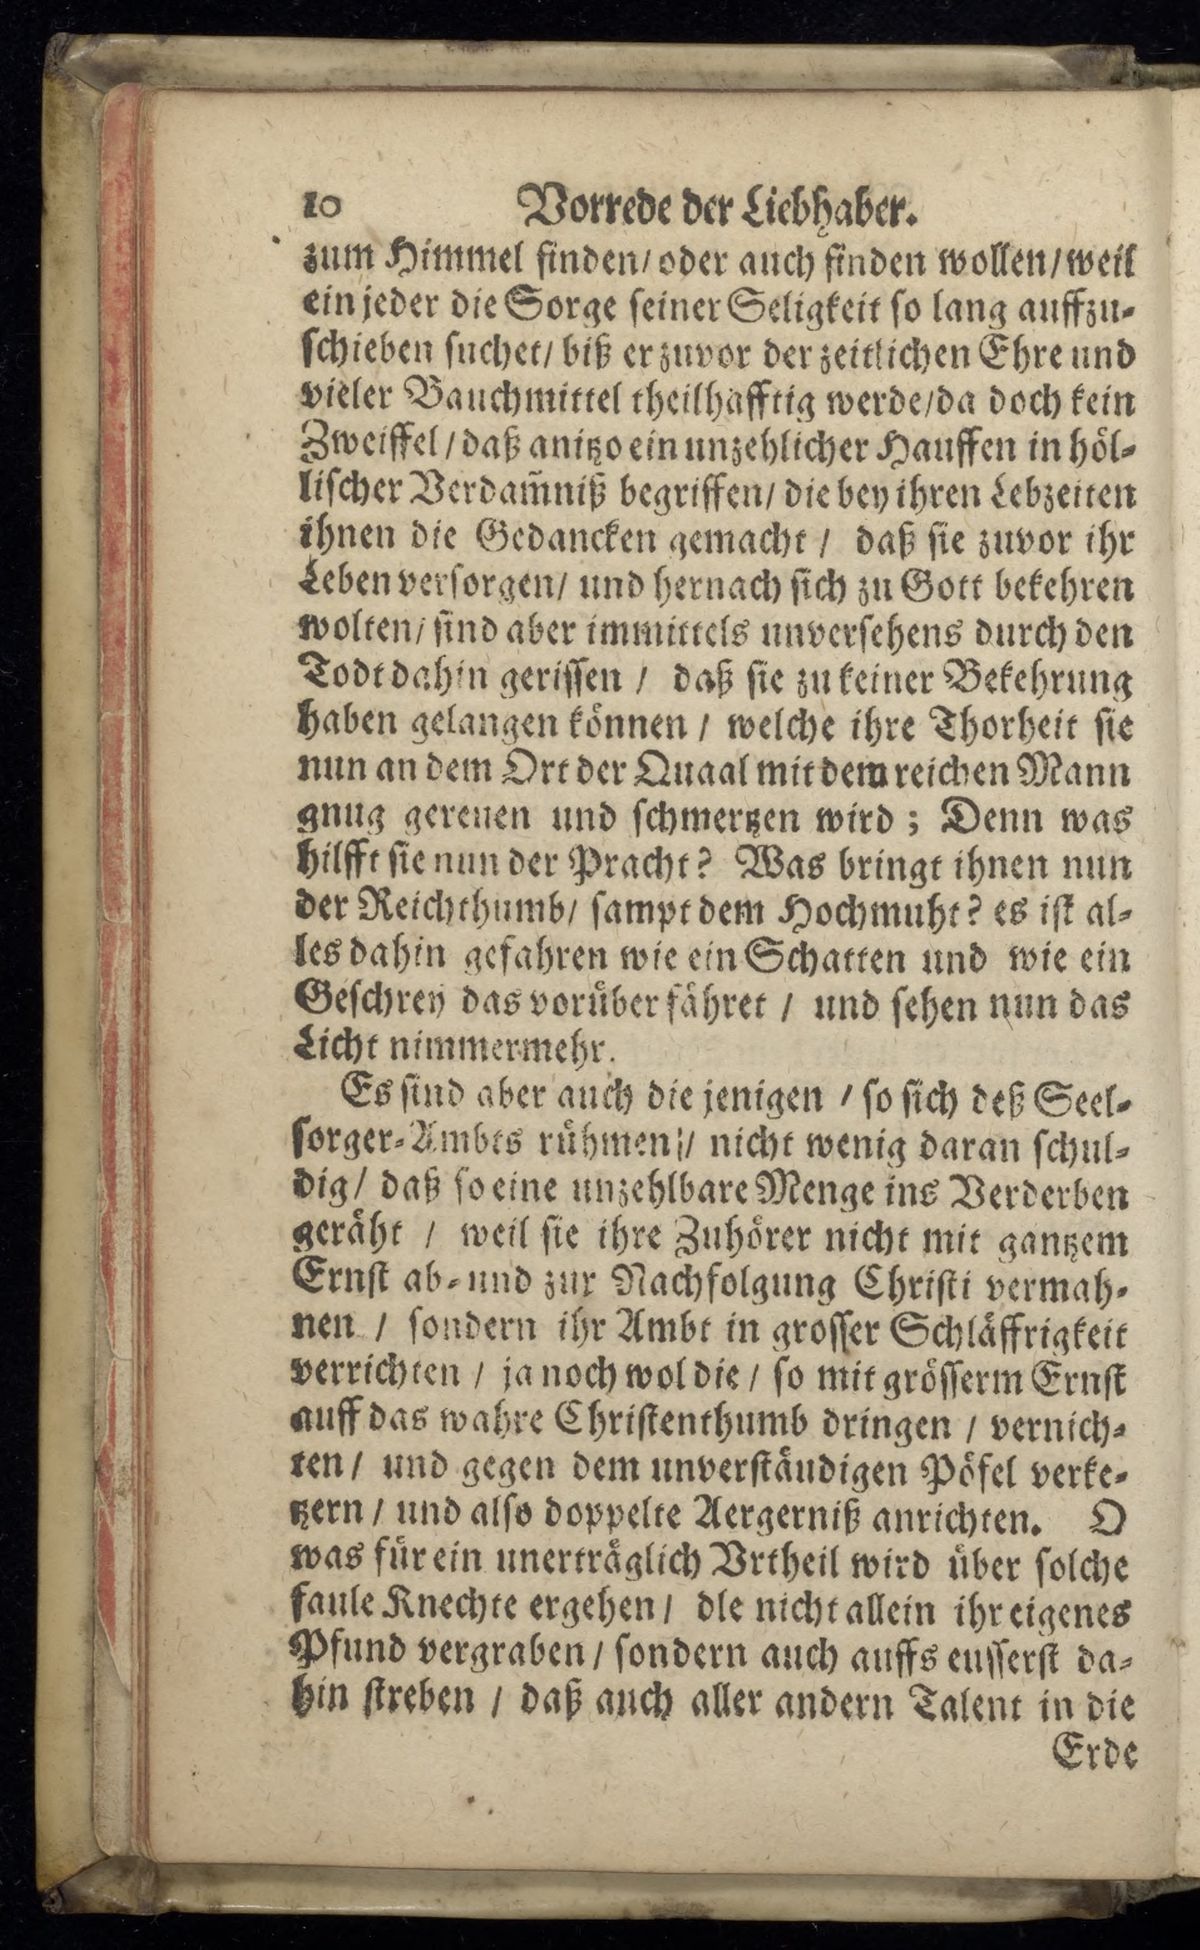 10 Vorrede der Liebhaber.
zum Himmel finden/ oder auch finden wollen/ weil
ein jeder die Sorge seiner Seligkeit so lang auffzu-
schieben suchet/ biß er zuvor der zeitlichen Ehre und
vieler Bauchmittel theilhafftig werde/ da doch kein
Zweiffel/ daß anitzo ein unzehlicher Hauffen in höl-
lischer Verdam̃niß begriffen/ die bey ihren Lebzeiten
ihnen die Gedancken gemacht / daß sie zuvor ihr
Leben versorgen/ und hernach sich zu Gott bekehren
wolten/ sind aber immittels unversehens durch den
Todt dahin gerissen / daß sie zu keiner Bekehrung
haben gelangen können / welche ihre Thorheit sie
nun an dem Ort der Quaal mit dem reichen Mann
gnug gereuen und schmertzen wird ; Denn was
hilfft sie nun der Pracht? Was bringt ihnen nun
der Reichthumb/ sampt dem Hochmuht? es ist al-
les dahin gefahren wie ein Schatten und wie ein
Geschrey das vorüber fähret / und sehen nun das
Licht nimmermehr.
Es sind aber auch die jenigen / so sich deß Seel-
sorger-Ambts rühmen/ nicht wenig daran schul-
dig/ daß so eine unzehlbare Menge ins Verderben
geräht / weil sie ihre Zuhörer nicht mit gantzem
Ernst ab- und zur Nachfolgung Christi vermah-
nen / sondern ihr Ambt in grosser Schläffrigkeit
verrichten / ja noch wol die / so mit grösserm Ernst
auff das wahre Christenthumb dringen / vernich-
ten / und gegen dem unverstäudigen Pöfel verke-
tzern / und also doppelte Aergerniß anrichten. O
was für ein unerträglich Vrtheil wird über solche
faule Knechte ergehen / dle nicht allein ihr eigenes
Pfund vergraben / sondern auch auffs eusserst da-
hin streben / daß auch aller andern Talent in die
Erde